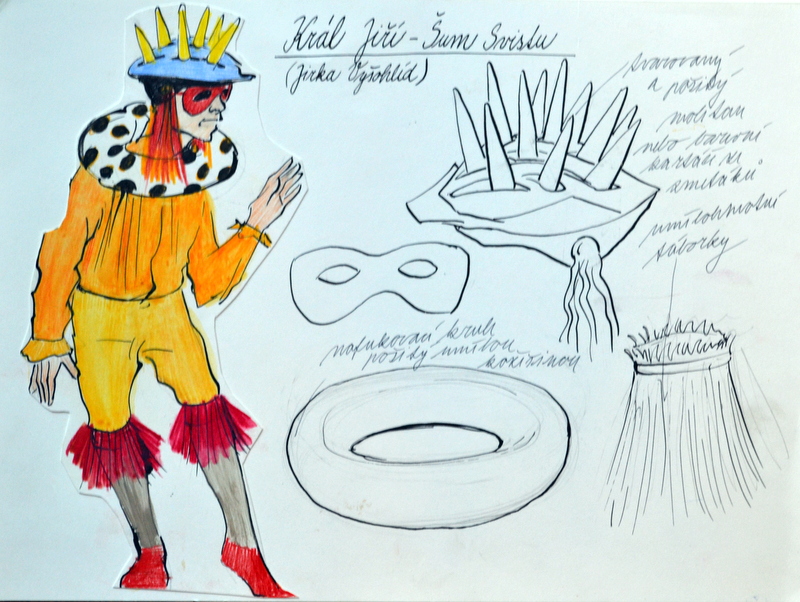 Král Jiří - Šum Svistu
(Jirka Vyšohlíd)
tvarovaný
a pošitý
molitan
nebo barevní
kartáči ze
smetáků
umělohmotní
táborky
nafukovací kruh
pošitý umělou
kožešinou